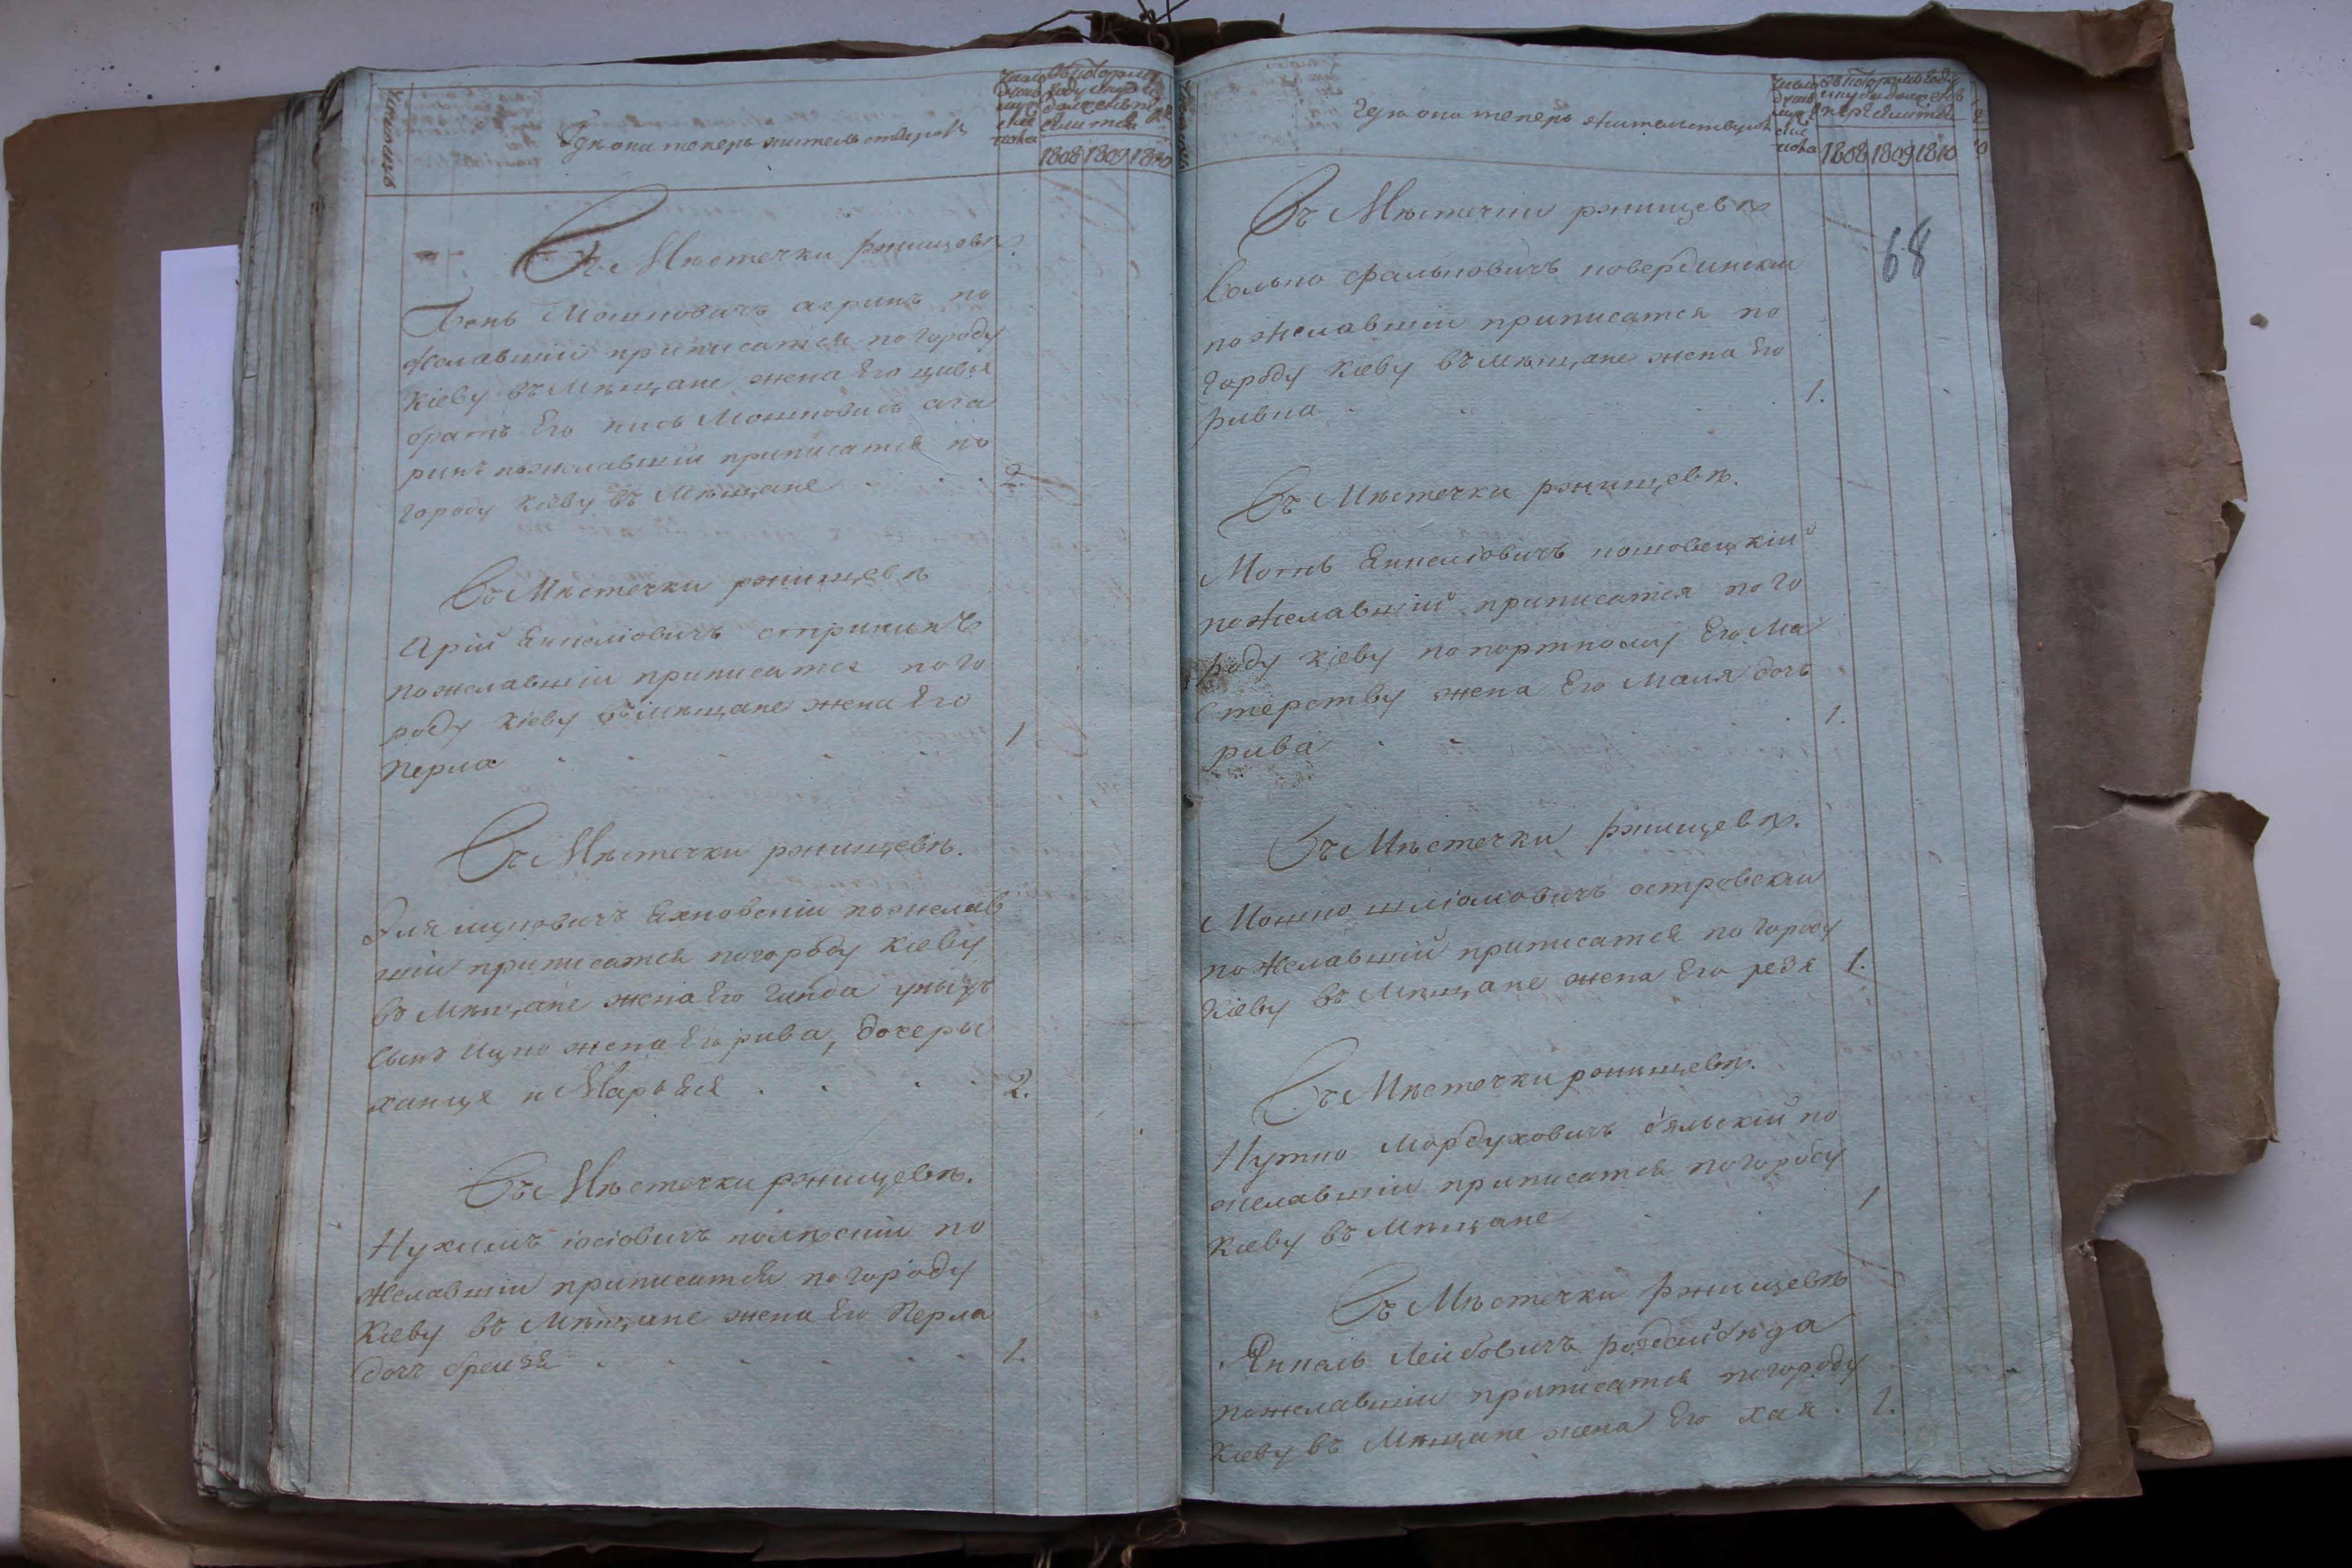 Где они теперь жительствуютъ
Число душъ мужеска пола
Въ которомъ году и куда должень переселится
1808 1809 1810
Въ Мѣстечки ржищевѣ
Бень Мошковичъ агринъ по
желавшій приписатся погороду
Кіеву въ Мѣщане жена Его цивя
братъ Его нись Мошковичъ ага
ринъ пожелавшій приписатся по
городу Кіеву въ Мѣщане 2.
Въ Мѣстечки ржищевѣ
Арій Янкеліовичъ
пожелавшій приписатся пого
роду Кіеву въ Мѣщане жена Его
Перла 1
Въ Мѣстечки ржищевѣ.
Эля ицковичъ Яхновскій пожелав
шій приписатся погороду Кіеву
въ Мѣщане жена Его
сынъ Ицко жена Его рива, дочеры
ханця и Марьяся 2.
Въ Мѣстечки ржищевѣ.
Нухимъ іосіовичъ полѣскій по
желавшій приписатся погороду
Кіеву въ Мѣщане жена Его Перла
дочъ 1.
Где они теперь жительствуютъ
Число душъ мужеска пола
Въ которомъ году и куда должень переселится
1808 1809 1810
68
Въ Мѣстечки ржищевѣ
пожелавшій приписатся по
городу Кіеву въ Мѣщане жена Его
ривка 1.
Въ Мѣстечки ржищевѣ.
Моть Янкеліовичъ
пожелавшій приписатся пого
роду Кіеву попортному Его Ма
стерству жена Его Маля дочъ
рива 1.
Въ Мѣстечки ржищевѣ.
Мошко шліомовичъ островскій
пожелавшій приписатся погороду
Кіеву въ Мѣщане жена Его 1.
Въ Мѣстечки ржищевѣ.
Нутко Мордуховичъ бялскій по
желавшій приписатся погороду
Кіеву въ Мѣщане 1
Въ Мѣстечки ржищевѣ
Янкель Лейбовичъ роздайбѣда
пожелавшій приписатся погороду
Кіеву въ Мѣщане жена Его хая. 1.